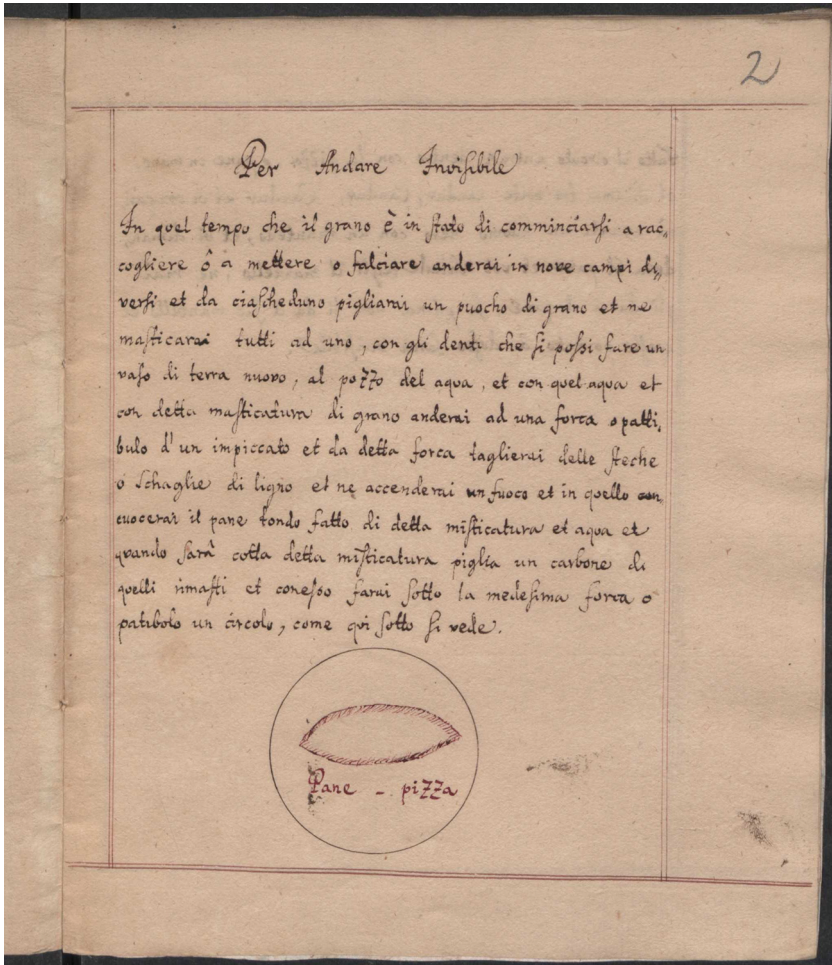 2
Per Andare Invisibile
In quel tempo che il grano è in stato di comminciarsi a rac„
cogliere ô a mettere o falciare anderai in nove campi di„
versi et da ciascheduno pigliarai un puocho di grano et ne
masticarai tutti ad uno, con gli denti che si possi fare un
vaso di terra nuovo, al pozzo del aqua, et con quel aqua et
con detta masticatura di grano anderai ad una forca o patti„
bulo d'un impiccato et da detta forca taglierai delle steche
o schaglie di ligno et ne accenderai un fuoco et in quello con„
cuocerai il pane tondo fatto di detta misticatura et aqua et
quando sarà cotta detta misticatura piglia un carbone di
quelli rimasti et conesso farai sotto la medesima forca o
patibolo un circolo, come qui sotto si vede.
Pane - pizza